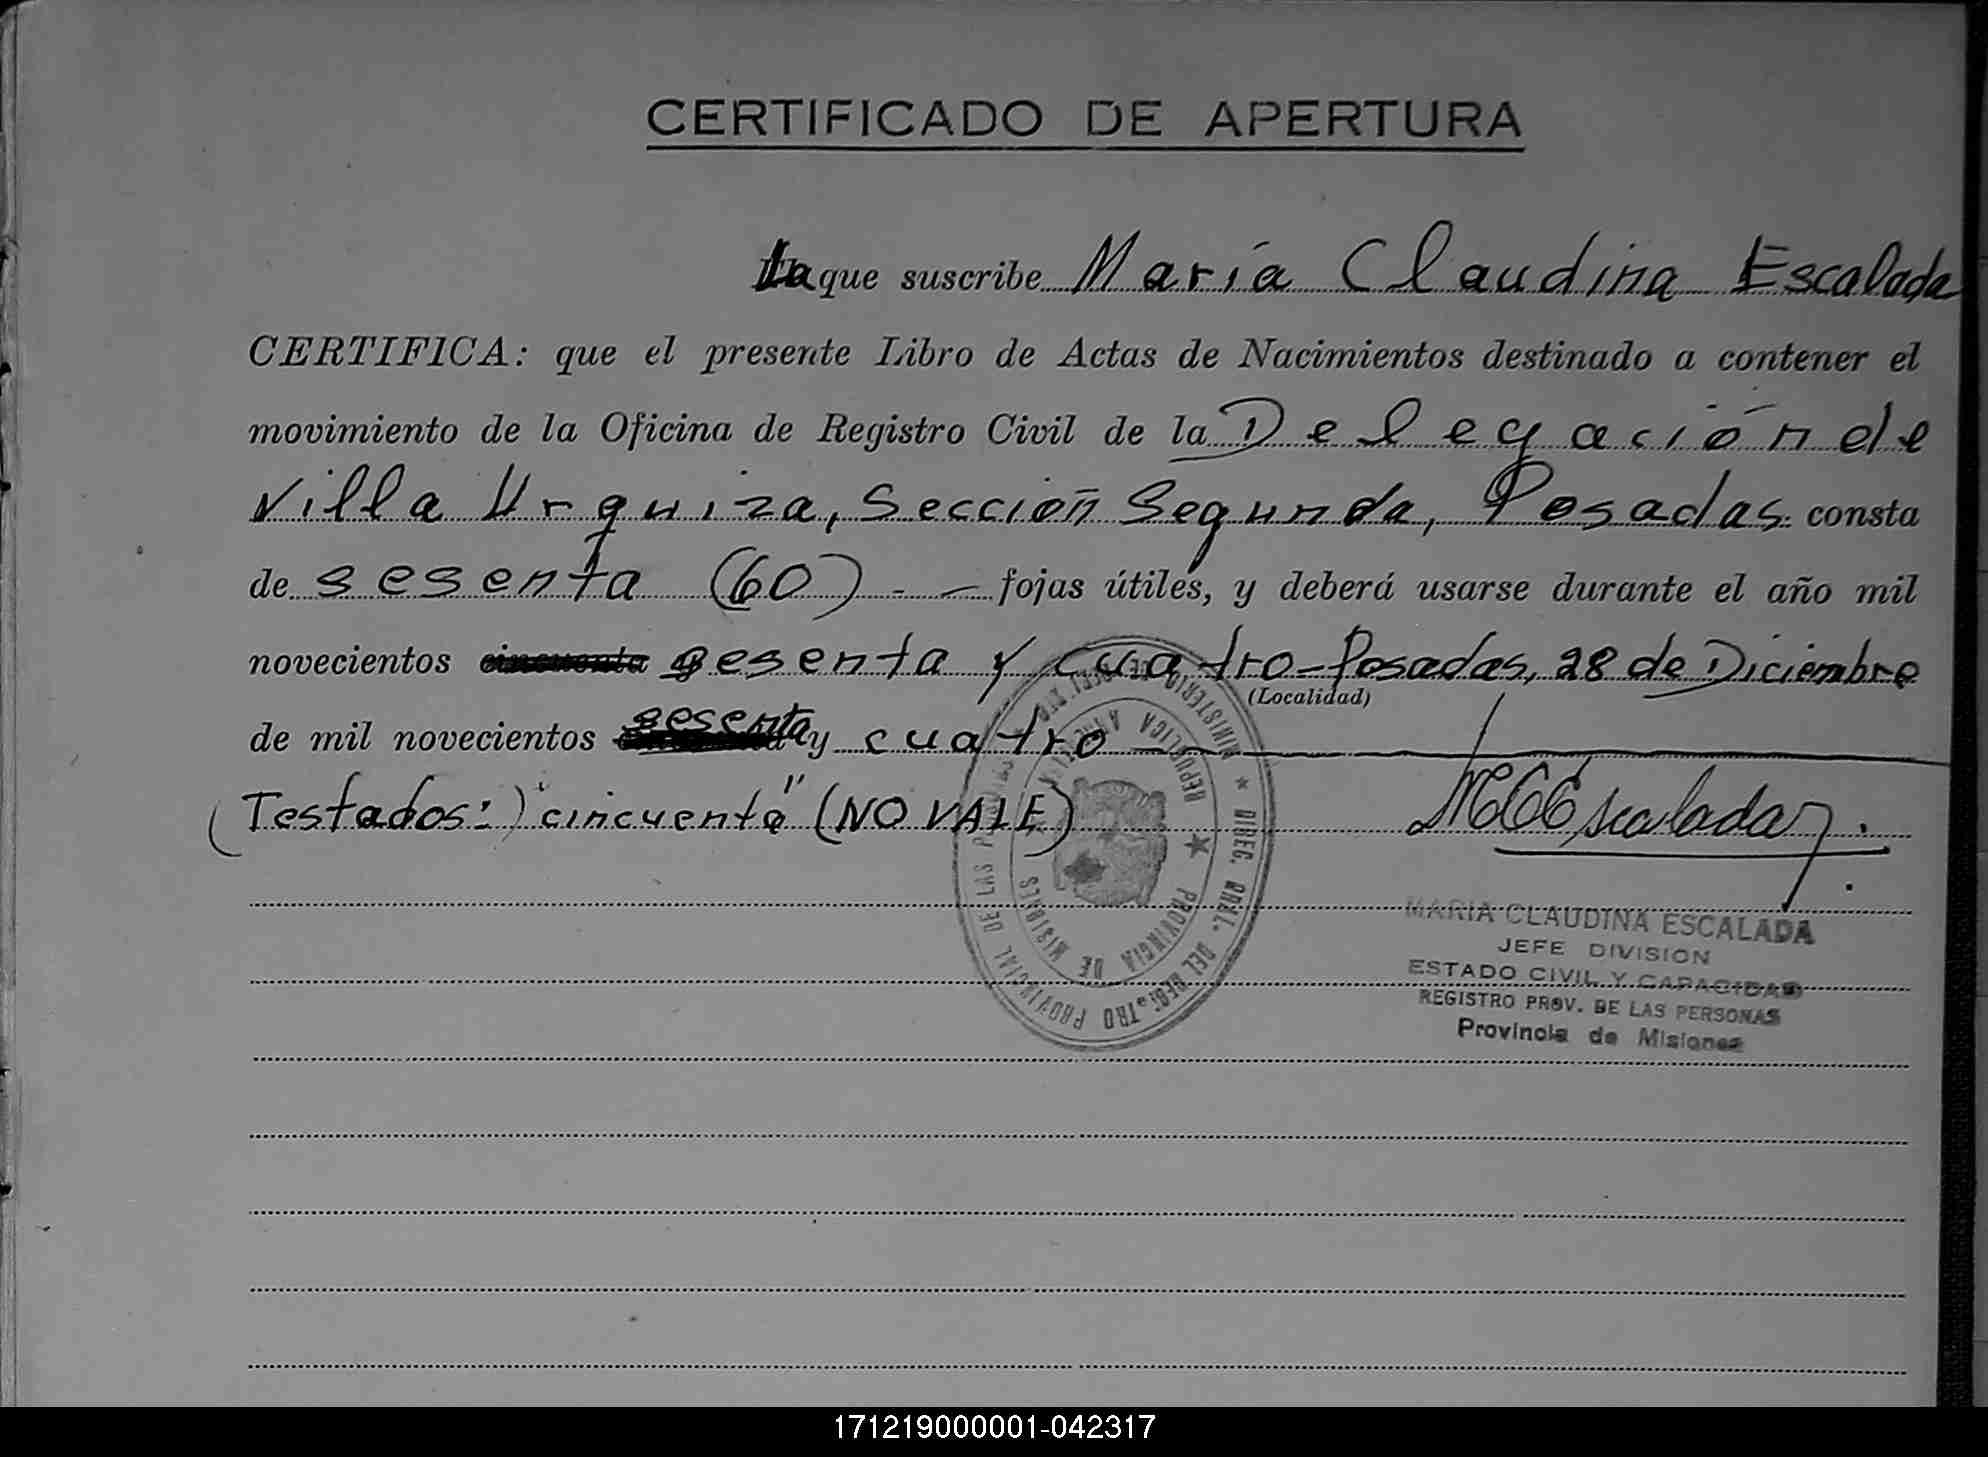 CERTIFICADO DE APERTURA
La que suscribe María Claudina Escalada
CERTIFICA: que el presente Libro de Actas de Nacimientos destinado a contener el
movimiento de la Oficina de Registro Civil de la Delegación de
Villa Urquiza, Sección Segunda, Posadas. consta
de sesenta (60) - — fojas útiles, y deberá usarse durante el año mil
novecientos cincuenta sesenta y cuatro - Posadas, 28 de Diciembre
(Localidad)
de mil novecientos sesenta y cuatro
(Testados:) "cincuenta" (NO VALE)
MCEscalada
★ DIREC. GRAL. DEL REGISTRO PROVINCIAL DE LAS
MINISTERIO DE
REPUBLICA ARGENTINA
★ PROVINCIA DE MISIONES
MARIA CLAUDINA ESCALADA
JEFE DIVISION
ESTADO CIVIL Y CAPACIDAD
REGISTRO PROV. DE LAS PERSONAS
Provincia de Misiones
171219000001-042317